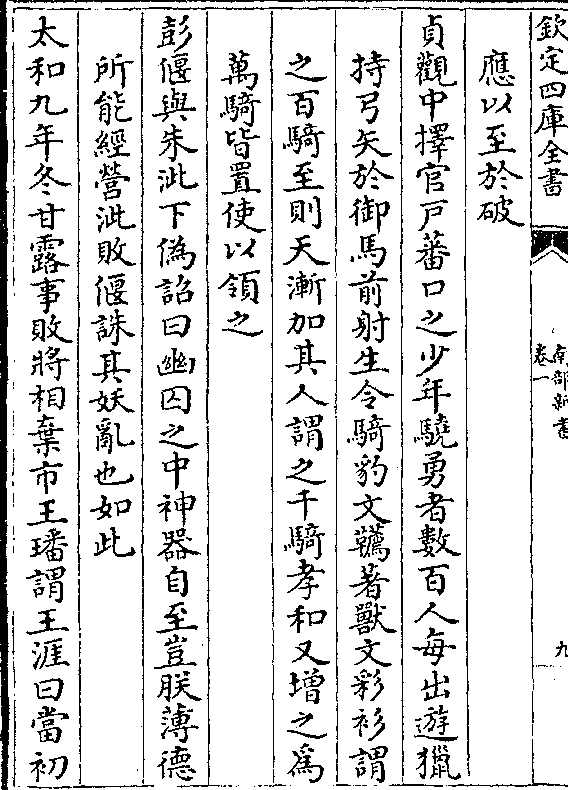 欽定四庫全書
南部新書
卷一
九
應以至於破
貞觀中擇官戸蕃口之少年驍勇者數百人每出遊獵
持弓矢於御馬前射生令騎豹文韉著獸文彩衫謂
之百騎至則天漸加其人謂之千騎孝和又增之爲
萬騎皆置使以領之
彭偃與朱泚下偽詔曰幽囚之中神器自至豈朕薄德
所能經營泚敗偃誅其妖亂也如此
太和九年冬甘露事敗將相棄市王璠謂王涯曰當初